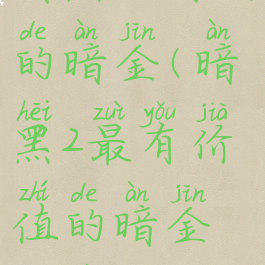 de àn jīn
的暗金(暗
hēi zuì yǒu jià
黑2最有价
zhí de àn jīn
值的暗金